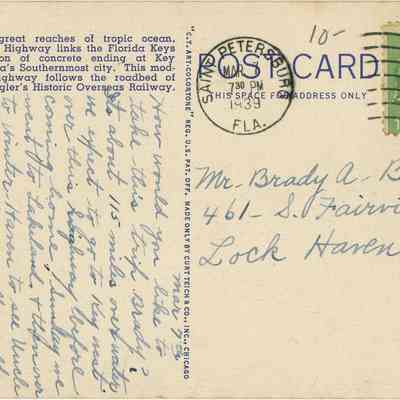 great reaches of tropic ocean,
Highway links the Florida Keys
on of concrete ending at Key
a's Southernmost city. This mod-
ighway follows the roadbed of
gler's Historic Overseas Railway.
"C.T. ART-COLORTONE" REG. U.S. PAT. OFF. MADE ONLY BY CURT TEICH & CO., INC., CHICAGO
POST CARD
THIS SPACE FOR ADDRESS ONLY
10-
SAINT PETERSBURG
MAR
7 30 PM
1939
FLA.
Mar 7
How would you like to
take this trip Brady?
It's about 115 miles over water
we expect to go to Key West
over this highway before
coming home. Sunday we
went to Lakeland & then over
to Winter Haven to see Uncle
Mr. Brady A. B
461 - S. Fairvi
Lock Haven